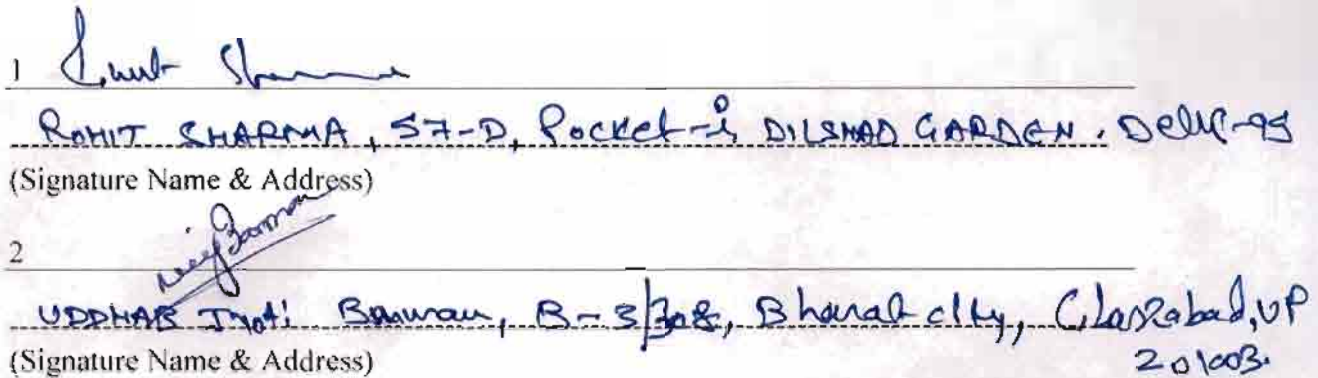 1
ROHIT SHARMA, 57-D, Pocket-i, DILSHAD GARDEN. Delhi-95
(Signature Name & Address)
2
UDDHAB Jyoti Barman, B-3/308, Bharat city, Ghaziabad, UP
201003.
(Signature Name & Address)